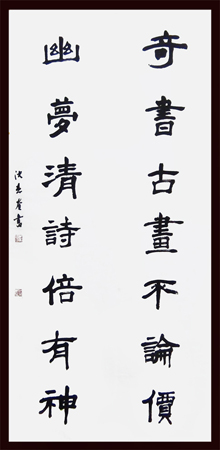 奇書古畫不論價
幽夢清詩倍有神